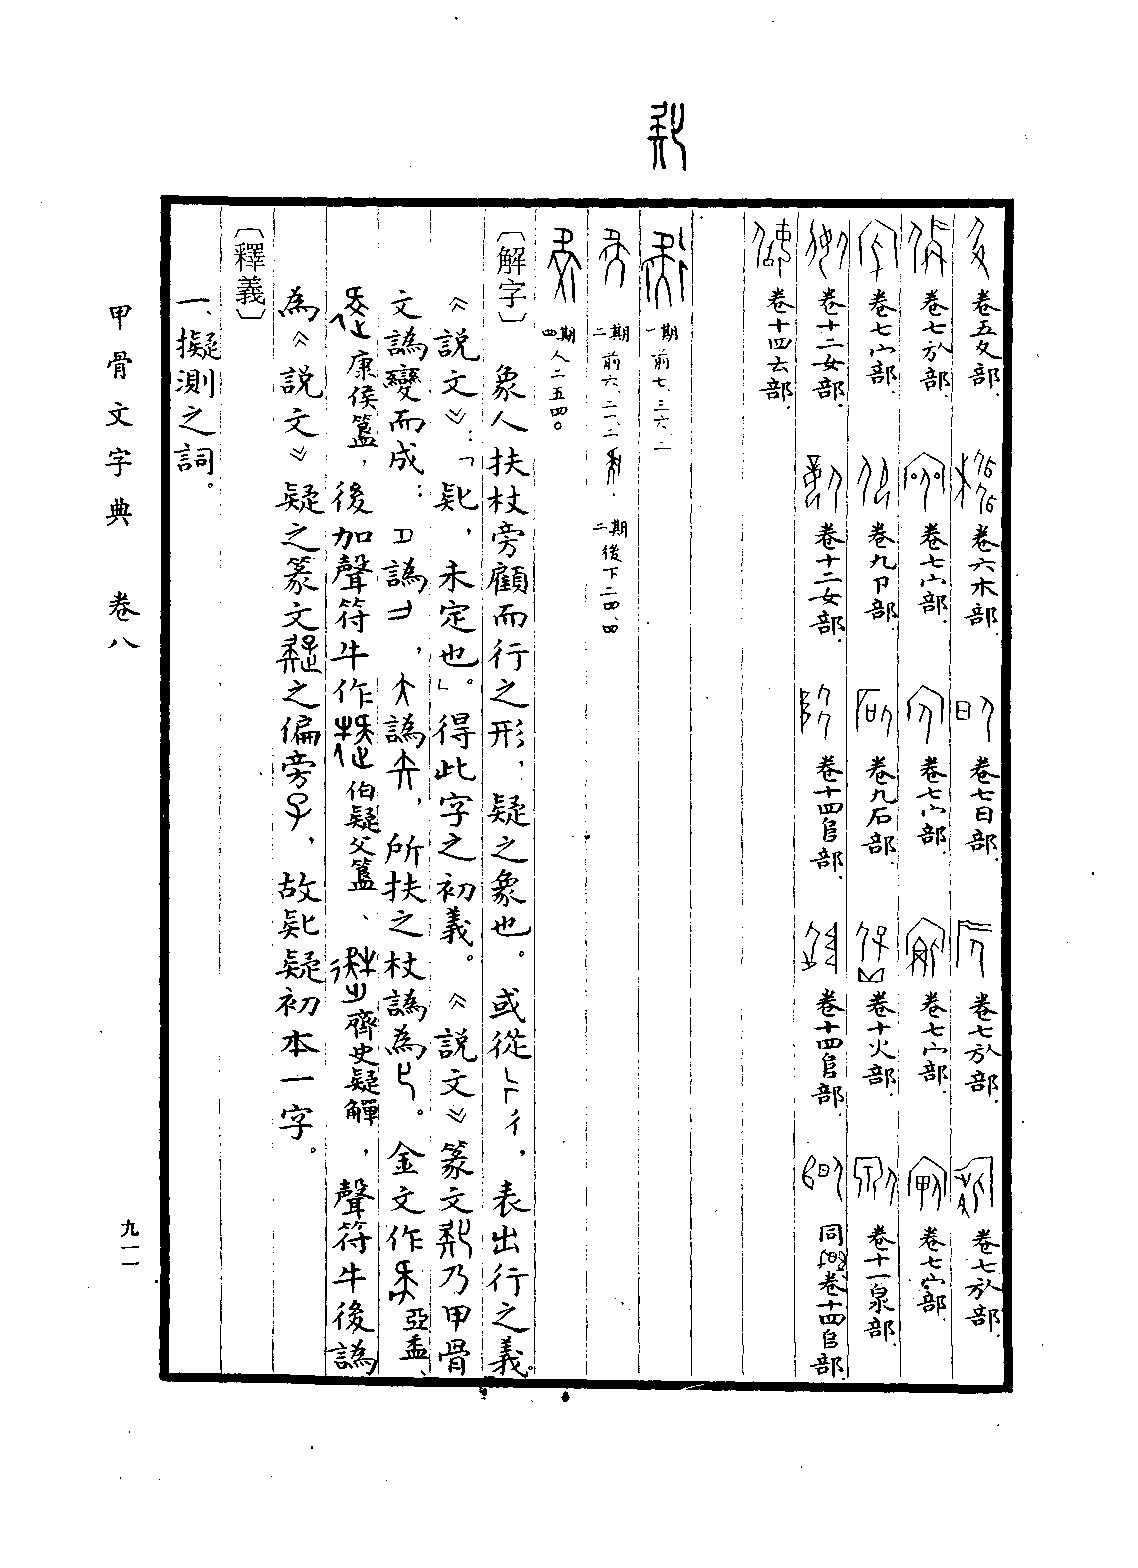 卷五夊部. 卷六木部. 卷七日部. 卷七㫃部. 卷七㫃部.
卷七㫃部. 卷七宀部. 卷七宀部. 卷七宀部. 卷七宀部.
卷七宀部. 卷九卩部. 卷九石部. 卷十火部. 卷十一泉部.
卷十二女部. 卷十二女部. 卷十四𨸏部. 卷十四𨸏部. 同 卷十四𨸏部.
卷十四𠫓部.
一期 前七.三六.二
二期 前六.二一.二 二期 後下二四.四
四期 人二二五四。
〔解字〕 象人扶杖旁顧而行之形,疑之象也。或從 彳,表出行之義。
《説文》:「𠤗,未定也。」得此字之初義。《説文》篆文 乃甲骨
文譌變而成: 譌 , 譌 ,所扶之杖譌為 。金文作 亞盉、
康侯簋,後加聲符牛作 伯疑父簋、 齊史疑觶,聲符牛後譌
為《説文》疑之篆文 之偏旁 ,故𠤗疑初本一字。
〔釋義〕
一、擬測之詞。
甲骨文字典 卷八
九一一